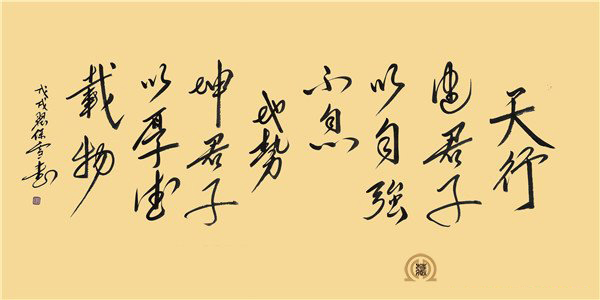 天行
健君子
以自強
不息
地勢
坤君子
以厚德
載物
戊戌 保 書